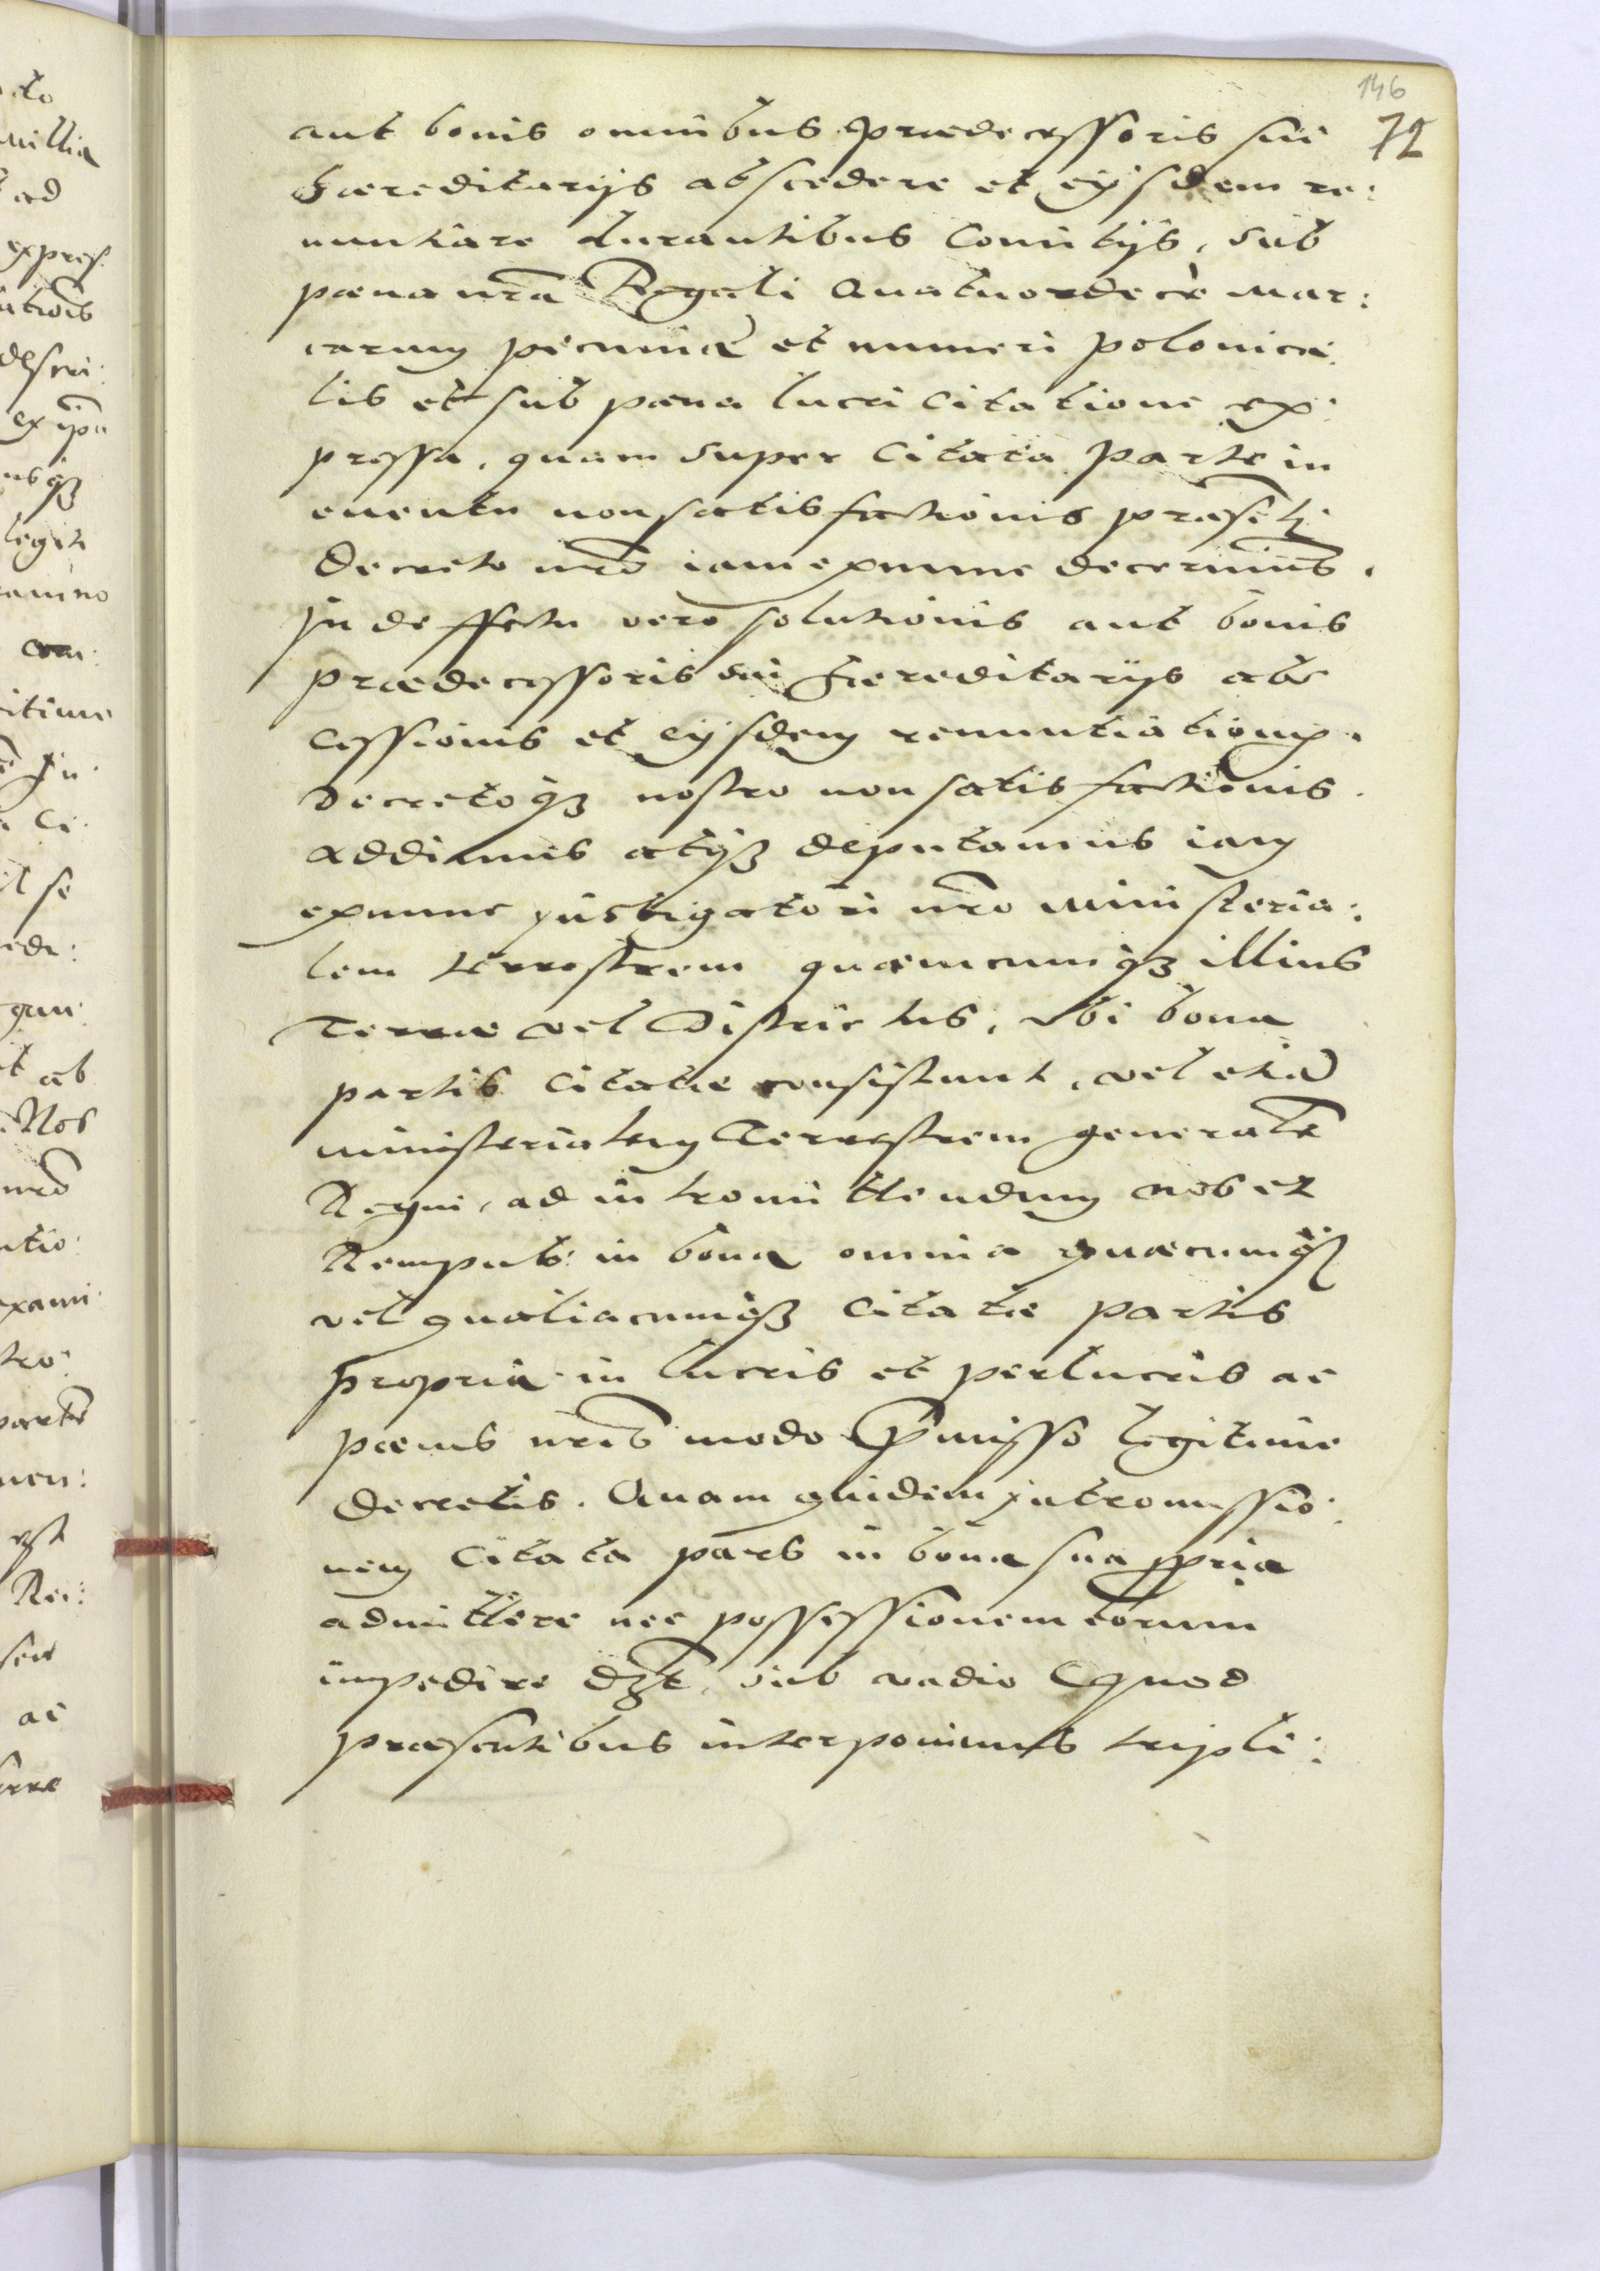 146
72
aut bonis omnibus prædecessoris sui
hæreditarijs abscedere et eijsdem re:
nuntiare durantibus Comitijs, sub
pœna nr̃a Regali Quatuordecẽ mar:
carum pecuniæ et numeri polonica:
lis et sub pœna lucri Citatione ex:
pressa, quam super Citata Parte in
euentu non satisfactionis præsẽti
Decreto nrõ iam exnunc decernim̃s.
In deffectu vero solutionis aut bonis
prædecessoris sui hæreditarijs abs
cessionis et eijsdem renuntiationis.
Decretoq3 nostro non satisfactionis.
addimus atq3 deputamus iam
exnunc instigatori nrõ ministeria:
lem terrestrem quæmcumq3 illius
Terræ vel Districtus, vbi bona
partis Citatæ consistunt, vel etiã
ministerialem Terrestrem generalẽ
Regni, ad intromittendum nos et
Rempub: in bona omnia quæcumq3
vel qualiacumq3 Citatæ partis
propria in lucris et perlucris ac
pœnis nrĩs modo p̃misso legitime
decretis. Quam quidem intromissio:
nem Citata pars in bona sua ppria
admittere nec possessionem eorum
impedire d3t, sub vadio Quod
præsentibus interponimus tripli: